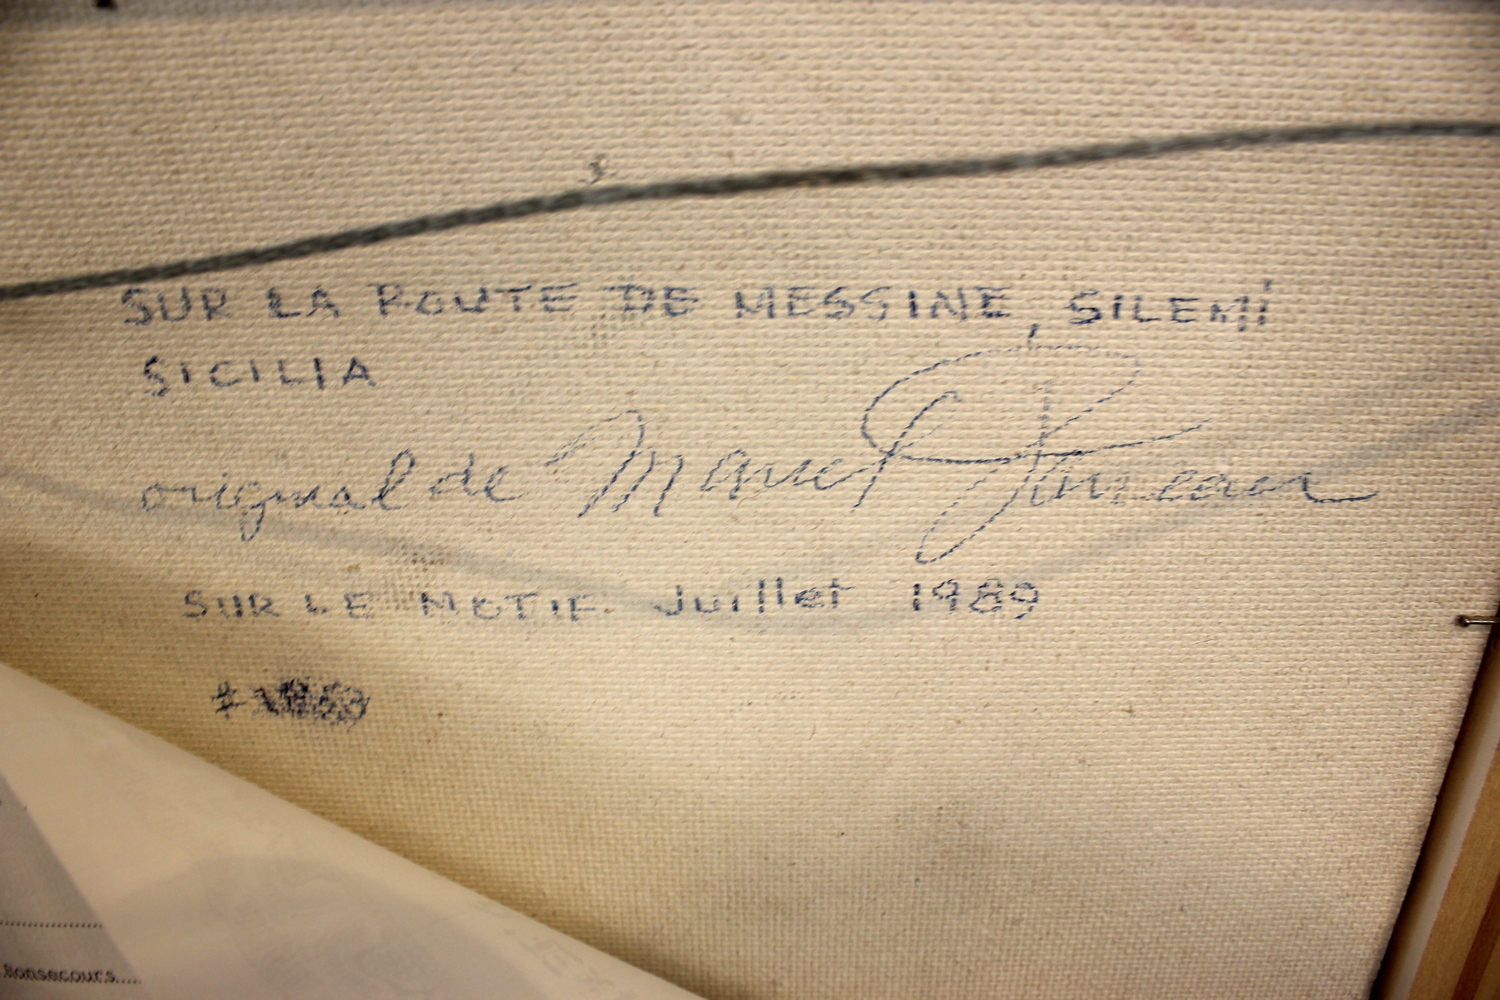 SUR LA ROUTE DE MESSINE, SILEMI
SICILIA
original de Marcel
SUR LE MOTIF Juillet 1989
Bonsecours.....